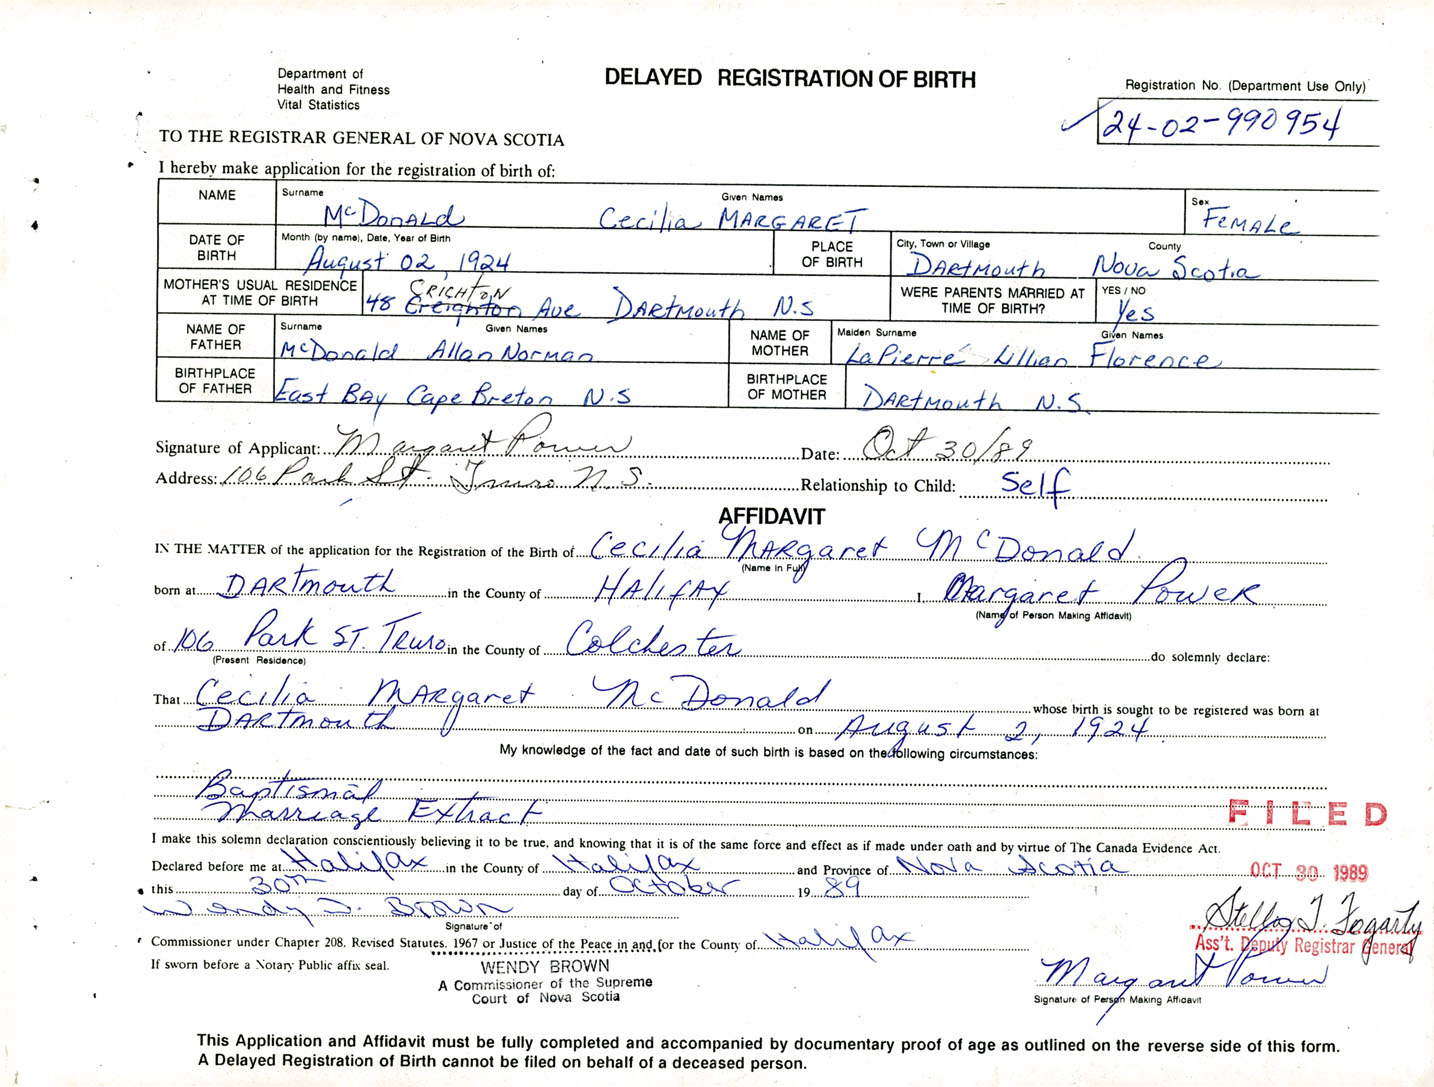 Department of
Health and Fitness
Vital Statistics
DELAYED REGISTRATION OF BIRTH
Registration No. (Department Use Only)
24-02-990954
TO THE REGISTRAR GENERAL OF NOVA SCOTIA
I hereby make application for the registration of birth of:
NAME Surname Given Names Sex
McDonald Cecilia MARGARET FEMALE
DATE OF BIRTH Month (by name), Date, Year of Birth PLACE OF BIRTH City, Town or Village County
August 02, 1924 DARTMOUTH Nova Scotia
MOTHER'S USUAL RESIDENCE AT TIME OF BIRTH CRICHTON WERE PARENTS MARRIED AT TIME OF BIRTH? YES / NO
48 Creighton Ave DARTMOUTH N.S Yes
NAME OF FATHER Surname Given Names NAME OF MOTHER Maiden Surname Given Names
McDonald Allan Norman LaPierre Lillian Florence
BIRTHPLACE OF FATHER East BAY Cape Breton N.S BIRTHPLACE OF MOTHER DARTMOUTH N.S.
Signature of Applicant: Margaret Power Date: Oct 30/89
Address: 106 Park St. Truro N.S. Relationship to Child: Self
AFFIDAVIT
IN THE MATTER of the application for the Registration of the Birth of Cecilia MARgaret McDonald
(Name in Full)
born at DARTMOUTH in the County of HALIFAX I, Margaret Power
(Name of Person Making Affidavit)
of 106 Park ST. Truro in the County of Colchester do solemnly declare:
(Present Residence)
That Cecilia MARgaret McDonald whose birth is sought to be registered was born at
DARTMOUTH on August 2, 1924
My knowledge of the fact and date of such birth is based on the following circumstances:
Baptismal
Marriage Extract
FILED
I make this solemn declaration conscientiously believing it to be true, and knowing that it is of the same force and effect as if made under oath and by virtue of The Canada Evidence Act.
Declared before me at Halifax in the County of Halifax and Province of Nova Scotia
OCT 30 1989
this 30th day of October 19 89
Wendy J. Brown
Stella T. Fogarty
Signature of
Ass't. Deputy Registrar General
Commissioner under Chapter 208, Revised Statutes, 1967 or Justice of the Peace in and for the County of Halifax
If sworn before a Notary Public affix seal.
WENDY BROWN
A Commissioner of the Supreme
Court of Nova Scotia
Margaret Power
Signature of Person Making Affidavit
This Application and Affidavit must be fully completed and accompanied by documentary proof of age as outlined on the reverse side of this form.
A Delayed Registration of Birth cannot be filed on behalf of a deceased person.